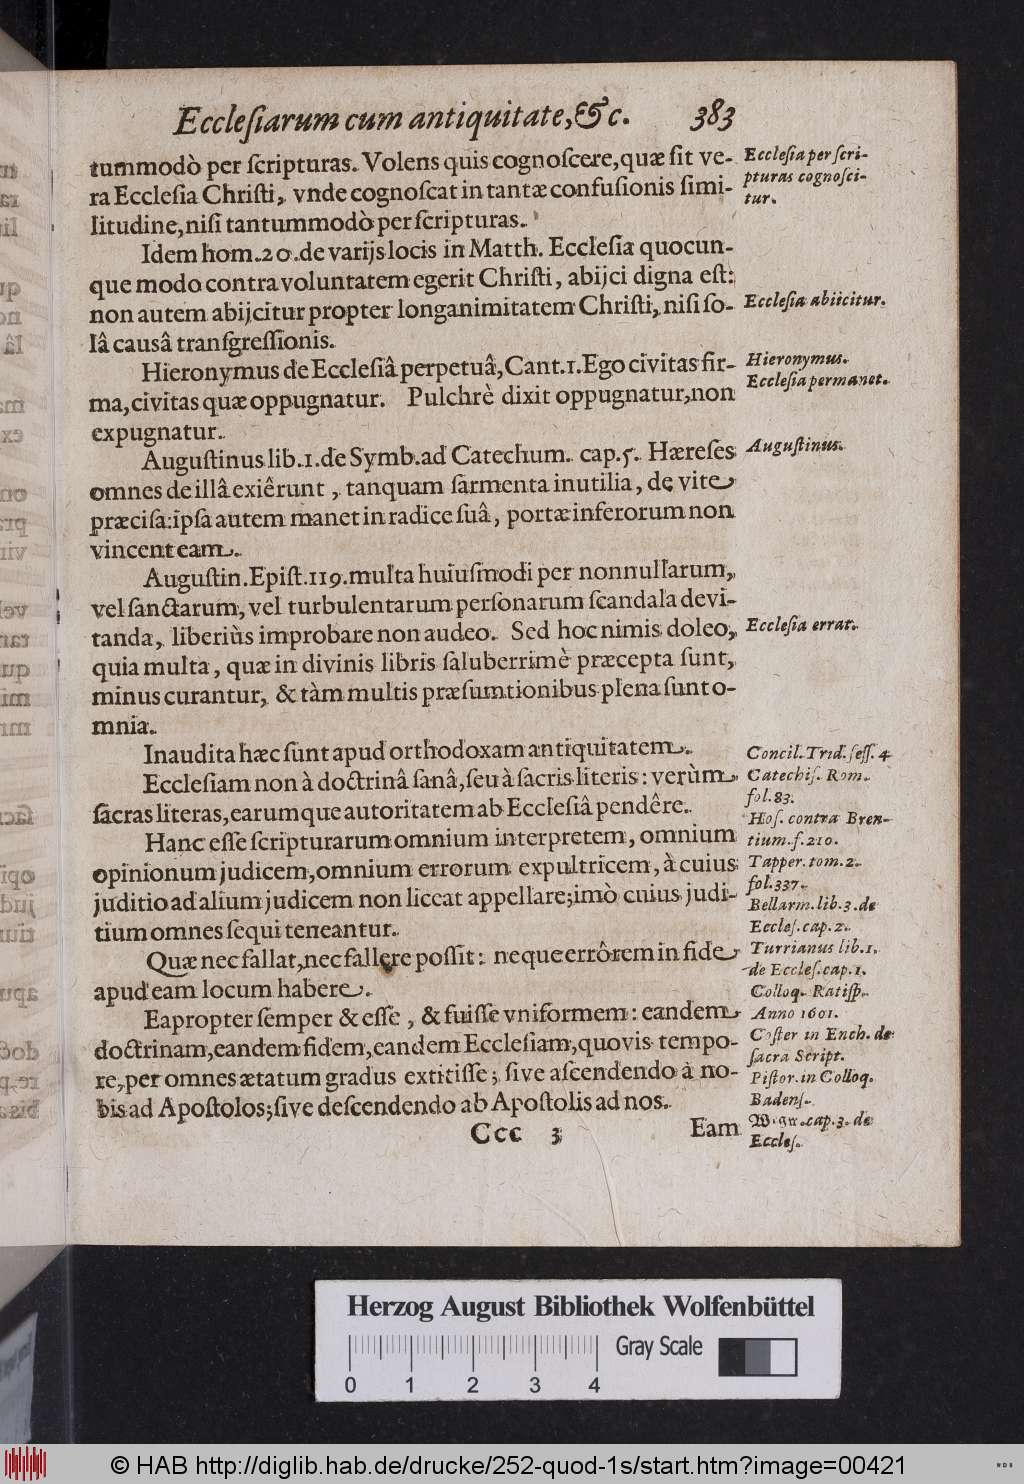 Eccleſiarum cum antiquitate, &c. 383
tummodò per ſcripturas. Volens quis cognoſcere, quæ ſit ve-
ra Eccleſia Chriſti, vnde cognoſcat in tantæ confuſionis ſimi-
litudine, niſi tantummodò per ſcripturas.
Eccleſia per ſcri-
pturas cognoſci-
tur.
Idem hom. 20. de varijs locis in Matth. Eccleſia quocun-
que modo contra voluntatem egerit Chriſti, abijci digna eſt:
non autem abijcitur propter longanimitatem Chriſti, niſi ſo-
lâ causâ tranſgreſſionis.
Eccleſia abiicitur.
Hieronymus de Eccleſiâ perpetuâ, Cant. 1. Ego civitas fir-
ma, civitas quæ oppugnatur. Pulchrè dixit oppugnatur, non
expugnatur.
Hieronymus.
Eccleſia permanet.
Auguſtinus lib. 1. de Symb. ad Catechum. cap. 5. Hæreſes
omnes de illâ exiêrunt, tanquam ſarmenta inutilia, de vite
præciſa: ipſa autem manet in radice ſuâ, portæ inferorum non
vincent eam.
Auguſtinus.
Auguſtin. Epiſt. 119. multa huiuſmodi per nonnullarum,
vel ſanctarum, vel turbulentarum perſonarum ſcandala devi-
tanda, liberiùs improbare non audeo. Sed hoc nimis doleo,
quia multa, quæ in divinis libris ſaluberrimè præcepta ſunt,
minus curantur, & tàm multis præſumtionibus plena ſunt o-
mnia.
Eccleſia errat.
Inaudita hæc ſunt apud orthodoxam antiquitatem.
Eccleſiam non à doctrinâ ſanâ, ſeu à ſacris literis: verùm
ſacras literas, earumque autoritatem ab Eccleſiâ pendêre.
Hanc eſſe ſcripturarum omnium interpretem, omnium
opinionum judicem, omnium errorum expultricem, à cuius
juditio ad alium judicem non liceat appellare; imò cuius judi-
tium omnes ſequi teneantur.
Quæ nec fallat, nec fallere poſſit: neque errôrem in fide
apud eam locum habere.
Eapropter ſemper & eſſe, & fuiſſe vniformem: eandem
doctrinam, eandem fidem, eandem Eccleſiam, quovis tempo-
re, per omnes ætatum gradus extitiſſe; ſive aſcendendo à no-
bis ad Apoſtolos; ſive deſcendendo ab Apoſtolis ad nos.
Concil. Trid. ſeſſ. 4
Catechiſ. Rom.
fol. 83.
Hoſ. contra Bren-
tium. f. 210.
Tapper. tom. 2.
fol. 337.
Bellarm. lib. 3. de
Eccleſ. cap. 2.
Turrianus lib. 1.
de Eccleſ. cap. 1.
Colloq. Ratiſp.
Anno 1601.
Coſter in Ench. de
ſacra Script.
Piſtor. in Colloq.
Badenſ.
cap. 3. de
Eccleſ.
Ccc 3 Eam
Herzog August Bibliothek Wolfenbüttel
Gray Scale
0 1 2 3 4
© HAB http://diglib.hab.de/drucke/252-quod-1s/start.htm?image=00421